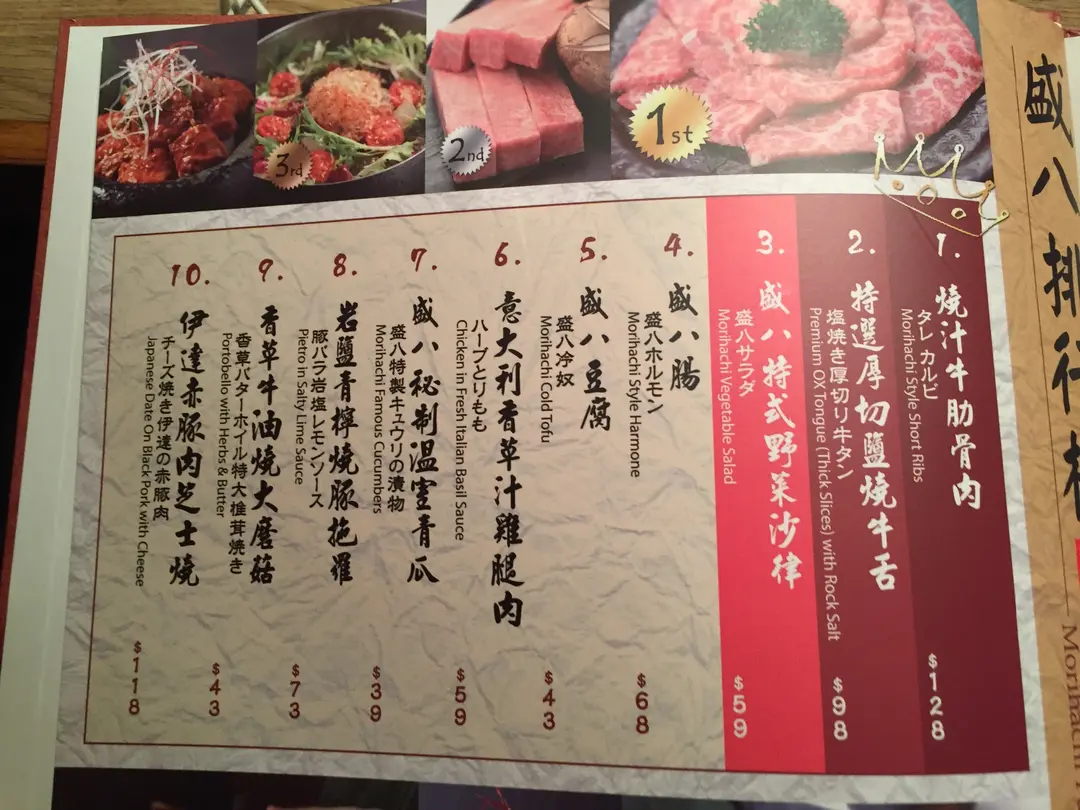 盛八排行
Morihachi
1st
2nd
3rd
1.
燒汁牛肋骨肉
タレ カルビ
Morihachi Style Short Ribs
$128
2.
特選厚切鹽燒牛舌
塩焼き厚切り牛タン
Premium OX Tongue (Thick Slices) with Rock Salt
$98
3.
盛八特式野菜沙律
盛八サラダ
Morihachi Vegetable Salad
$59
4.
盛八腸
盛八ホルモン
Morihachi Style Harmone
$68
5.
盛八豆腐
盛八冷奴
Morihachi Cold Tofu
$43
6.
意大利香草汁雞腿肉
ハーブとりもも
Chicken in Fresh Italian Basil Sauce
$59
7.
盛八秘制温室青瓜
盛八特製キュウリの漬物
Morihachi Famous Cucumbers
$39
8.
岩鹽青檸燒豚拖羅
豚バラ岩塩レモンソース
Pietro in Salty Lime Sauce
$73
9.
香草牛油燒大磨菇
香草バターホイル特大椎茸焼き
Portobello with Herbs & Butter
$43
10.
伊達赤豚肉芝士燒
チーズ焼き伊達の赤豚肉
Japanese Date On Black Pork with Cheese
$118